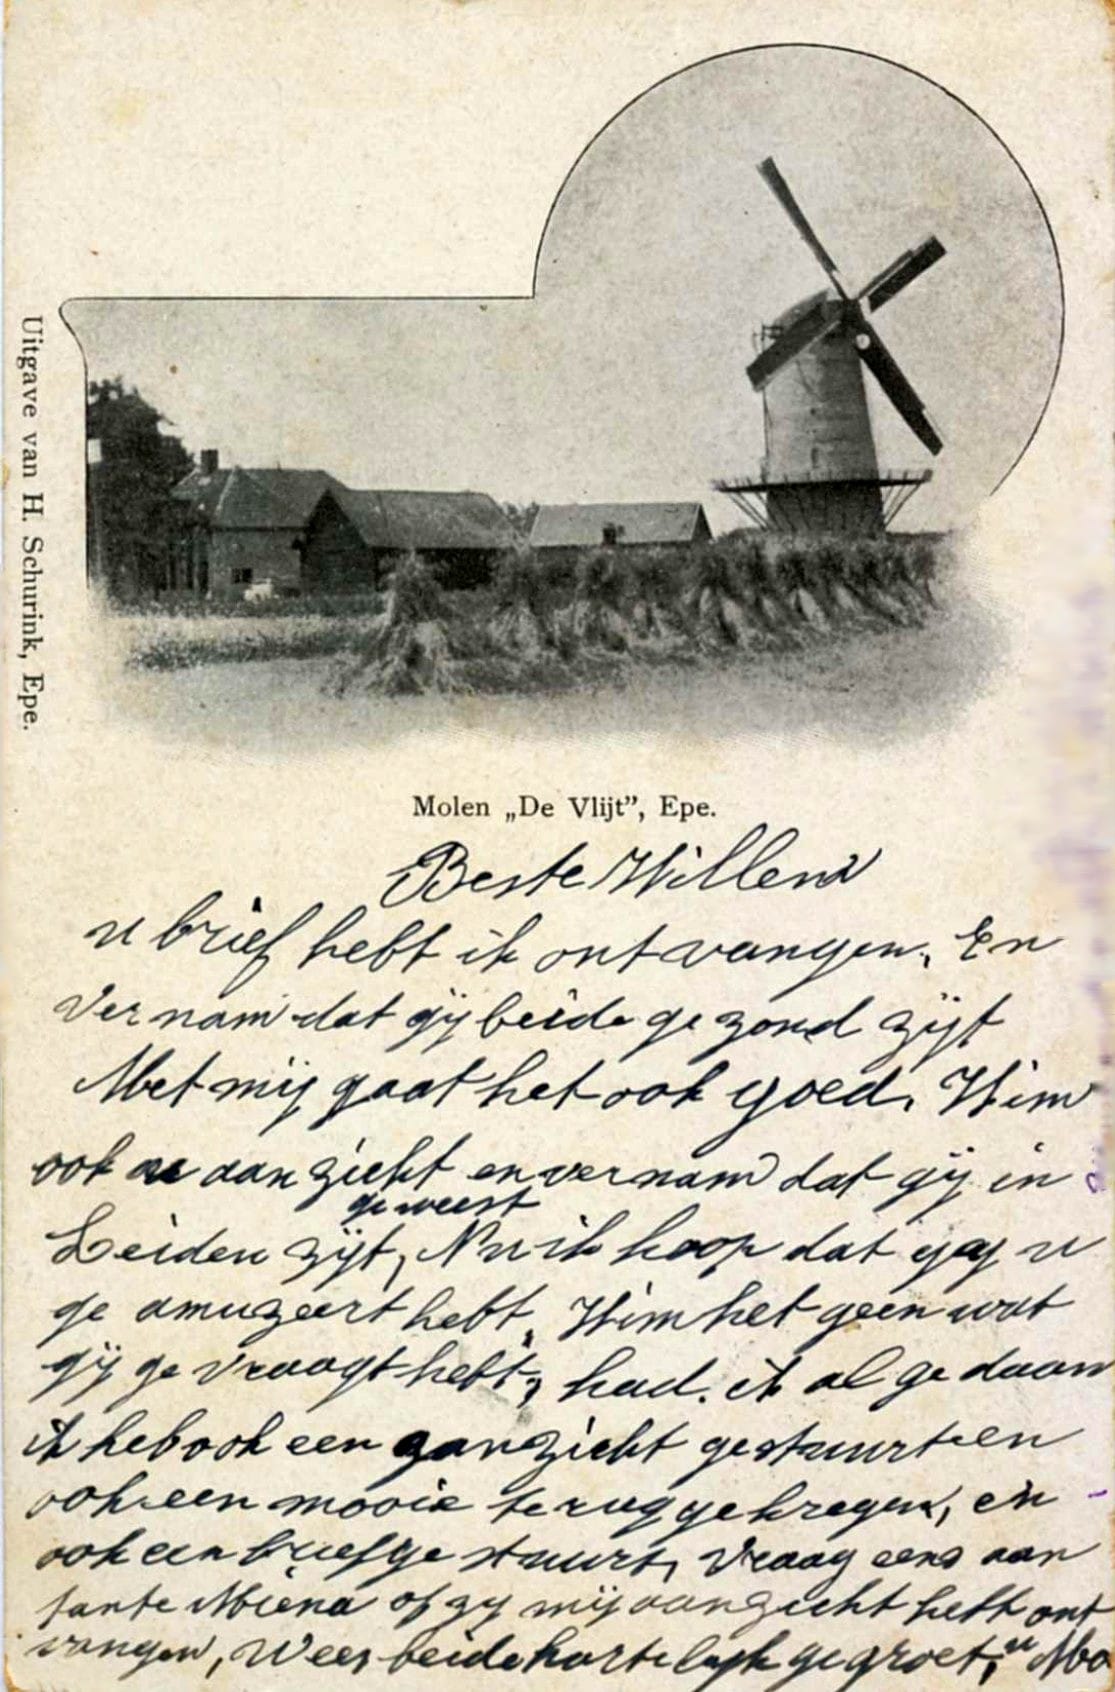 Uitgave van H. Schurink, Epe.
Molen „De Vlijt”, Epe.
Beste Willem
u brief hebt ik ontvangen. En
Vernam dat gij beide gezond zijt
Met mij gaat het ook goed. Wim
ook u aanzicht en vernam dat gij in
geweest
Leiden zijt, Nu ik hoop dat gij u
ge amuzeert hebt, Wim het geen wat
gij ge vraagt hebt, had ik al ge daan
ik heb ook een aanzicht gestuurt en
ook een mooie terug gekregen, en
ook een briefge stuurt, Vraag eens aan
tante Miena of zy mij aanzicht hebt ont
vangen, Wees beide hartelijk gegroet, u Mo